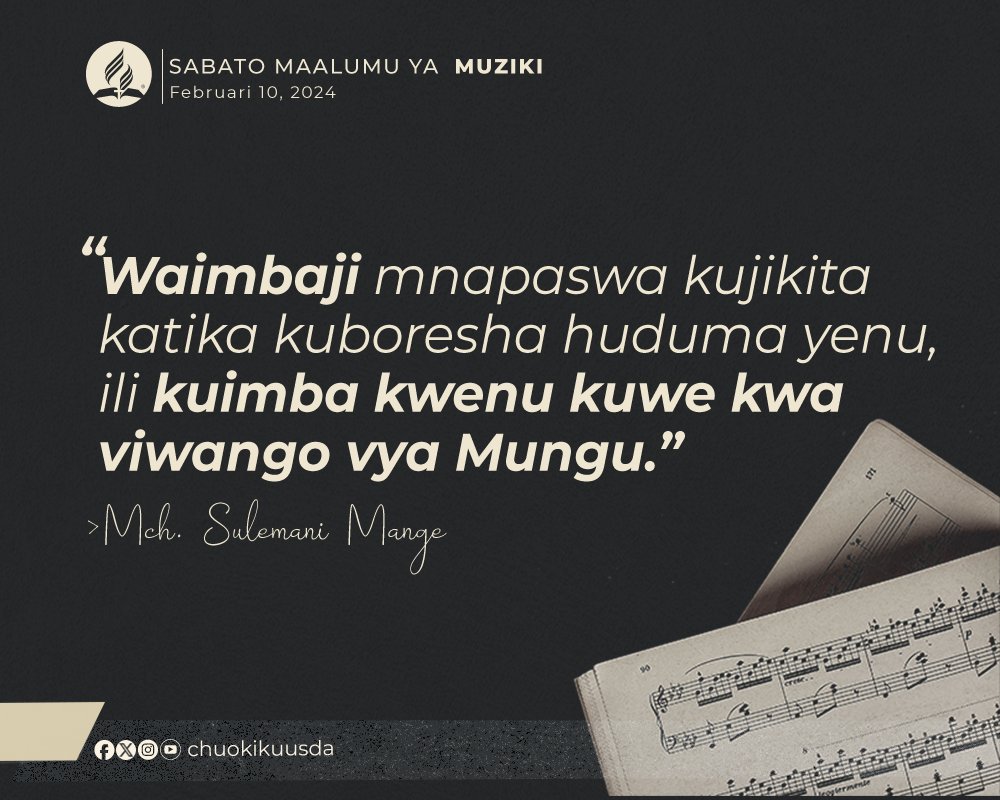 SABATO MAALUMU YA MUZIKI
Februari 10, 2024
“Waimbaji mnapaswa kujikita
katika kuboresha huduma yenu,
ili kuimba kwenu kuwe kwa
viwango vya Mungu.”
>Mch. Sulemani Mange
171
90
p
cresc.
8
leggiermente
chuokikuusda